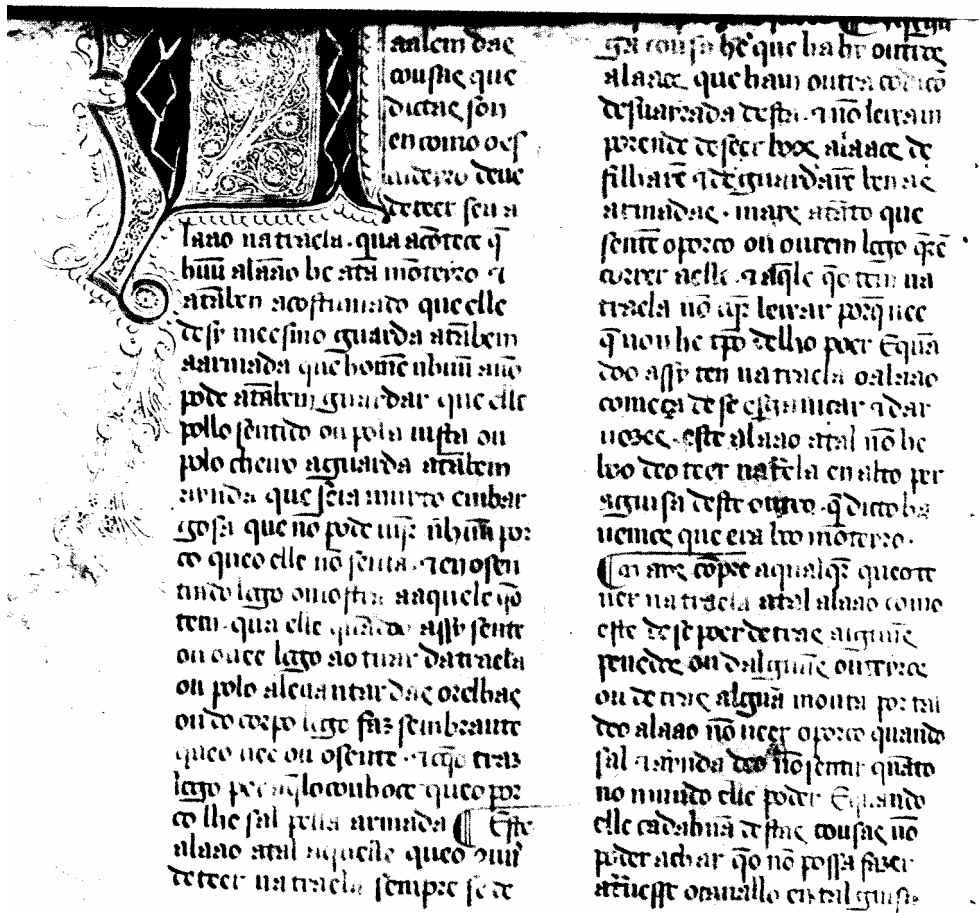 aalem das
cousas que
dictas son
en como o es
deue
deteer seu a
laão na trácla. qua acõtece q̃
hũu alaão he atã mõteyro ⁊
atãben acostumado que elle
desy meesmo guarda atãbem
aarmada que homẽ nhũu anõ
pode atãbem guardar que elle
pollo sentido ou pola uista ou
polo cheiro aguarda atãbem
ainda que seria muyto embar
gosa que no pode uĩjr nhũm por
co que o elle nõ senta. ⁊ en o sen
tindo lego o mostra aaquele q̃o
tem. qua elle quãdo assy sente
ou ouue lego ao tirar da tracla
ou polo aleuantar das orelhas
ou do corpo lego faz sembrante
que o uee ou o sente. ⁊ q̃o traz
lego per aq̃lo conhoce que o por
co lhe sal pella armada ¶ Este
alaão atal aquelle que o ouuer
deteer na tracla sempre se de
ga cousa he que ha hi outros
alaães que ham outra
desuairada desta. ⁊ nõ leixam
porende de seer bõos alaães de
filharẽ ⁊ de guardarẽ ben as
armadas. mais atãto que
sentẽ o porco ou ouuem lego q̃rẽ
correr a elle. ⁊ aaq̃le q̃o tem na
tracla nõ q̃r leixar porq̃ uee
q̃ non he tp̃o de lho poer E quã
doo assy ten na tracla o alaão
começa de se esganiçar ⁊ dar
uozes. este alaão atal nõ he
bõo deo teer na tela en alto per
aguisa deste outro q̃ dicto ha
uemos que era bõo mõteyro.
¶ mais cõpre a qualq̃r que o te
uer na tracla atal alaão como
este de se poer de tras alguũs
penedos ou dalguũs outeiros
ou de tras algũa mouta por tal
deo alaão nõ ueer o porco quando
sal ⁊ ainda deo nõ sentir quãto
no mundo elle poder E quando
elle cada hũa destas cousas nõ
poder achar q̃o nõ possa fazer
o cauallo en tal guisa